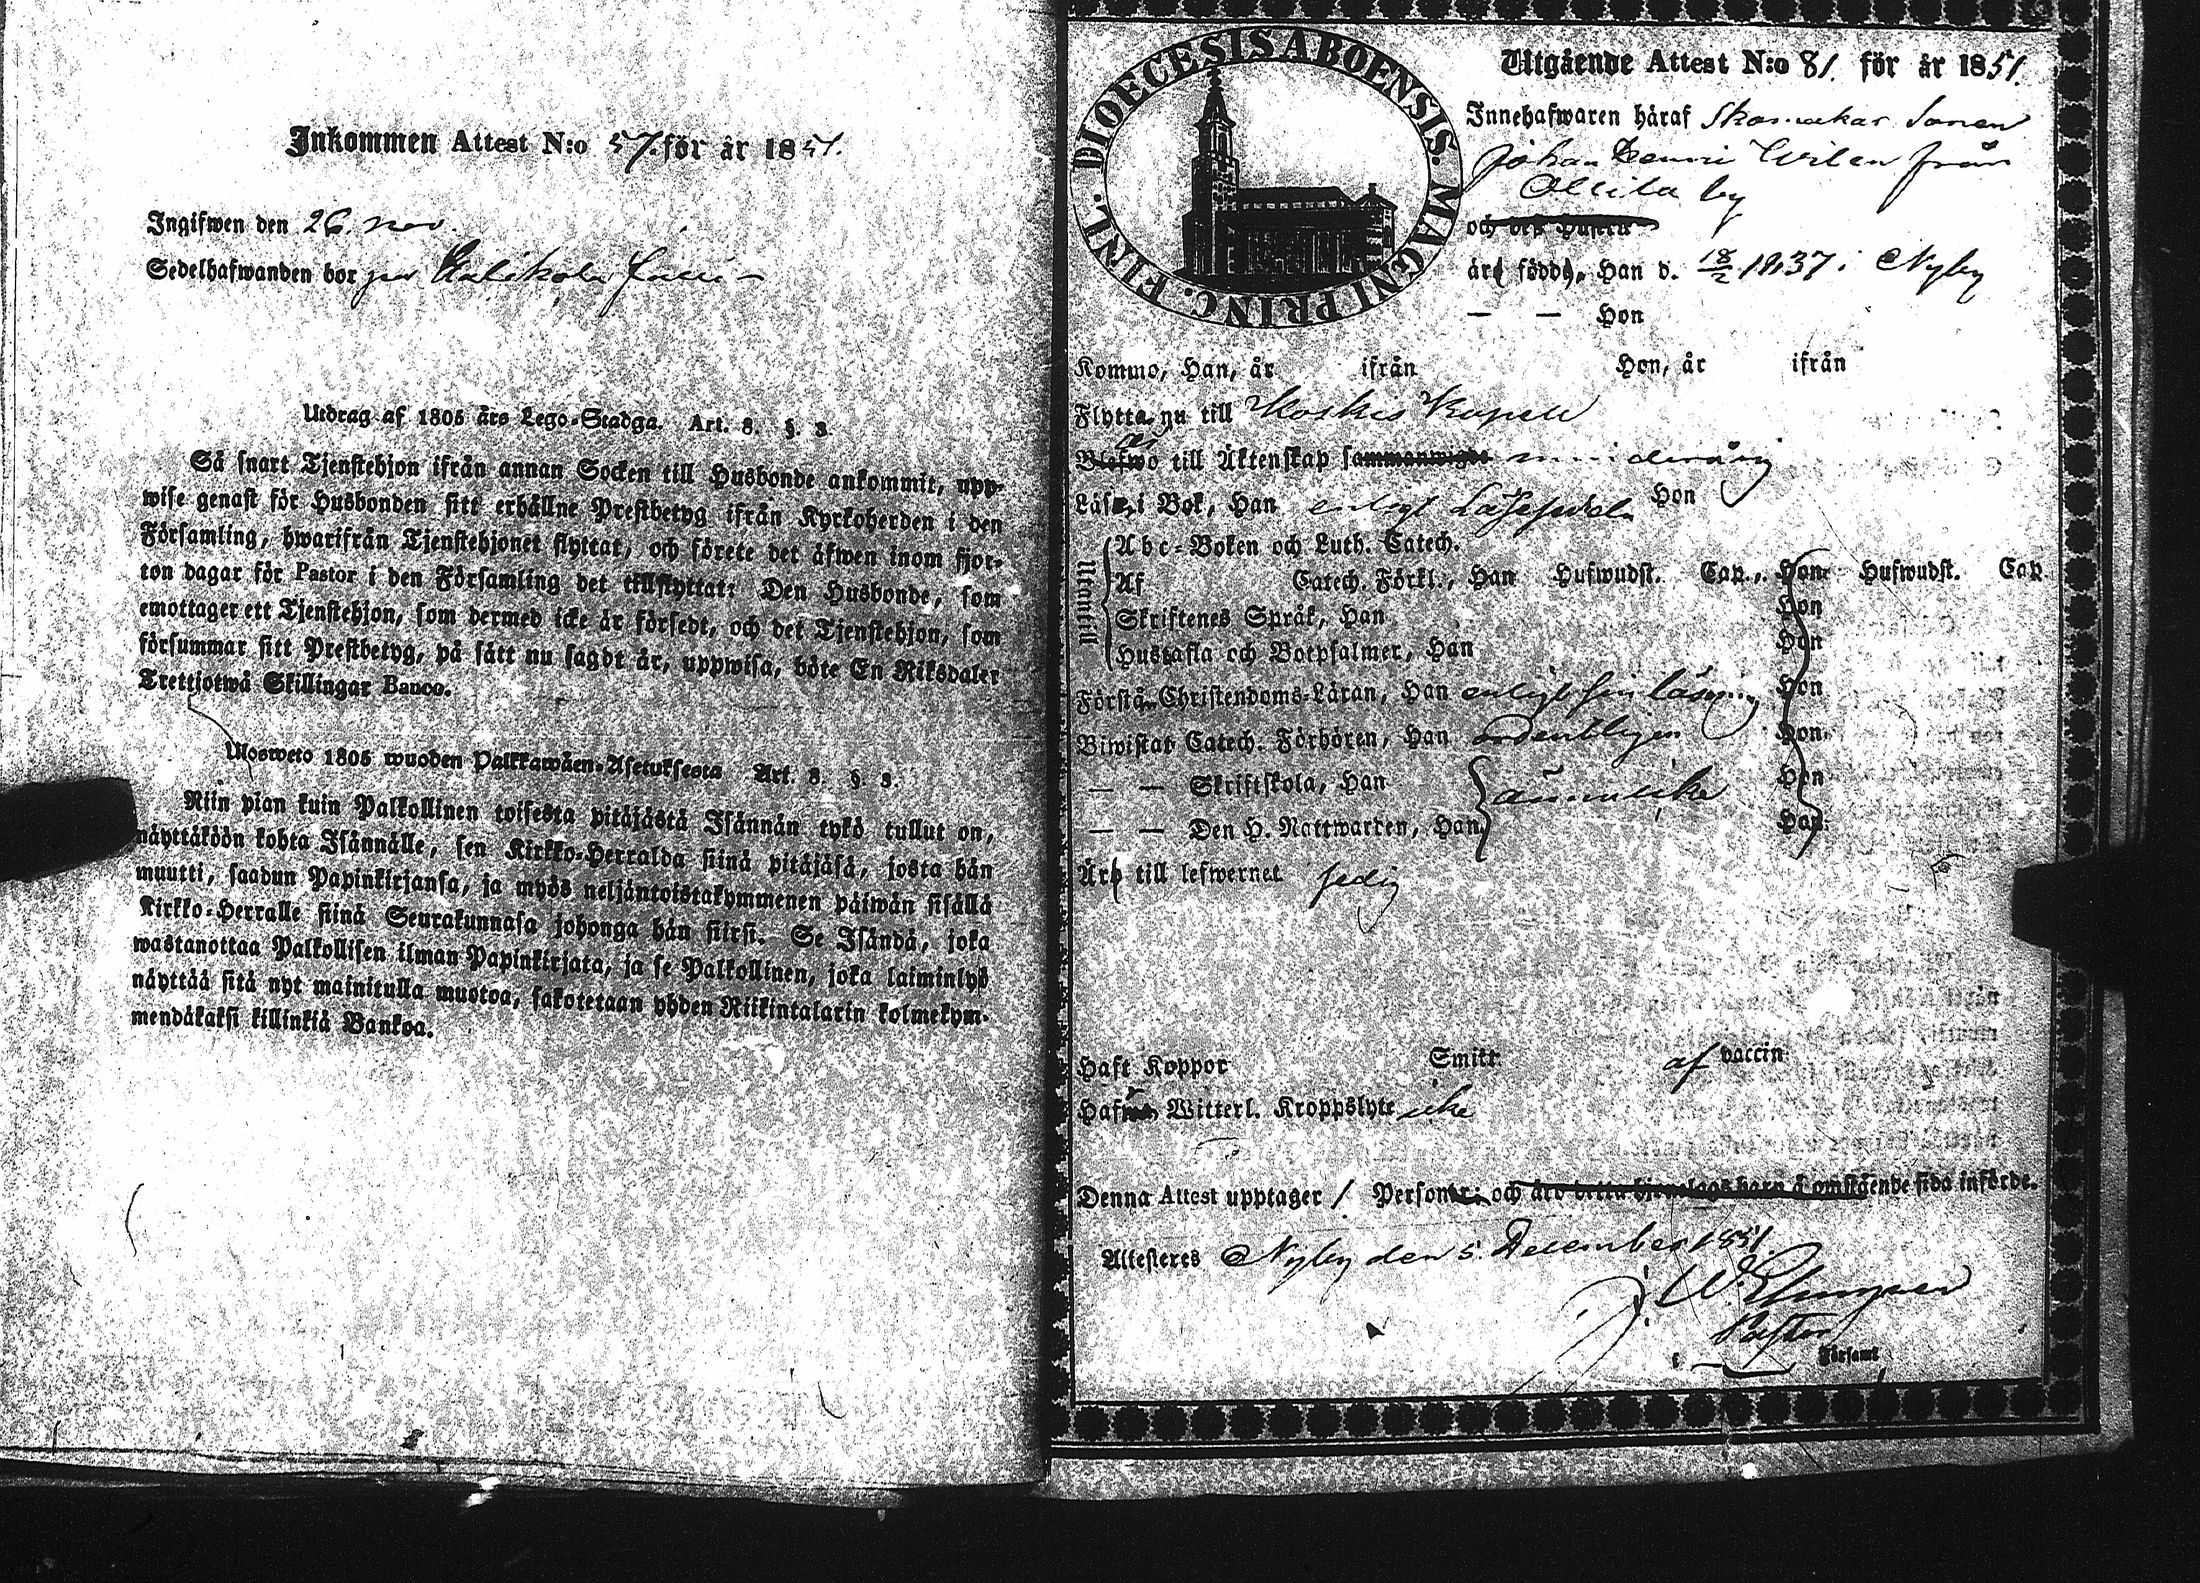 Inkommen Attest N:o 57. för år 1851.
Ingifwen den 26. nov.
Sedelhafwanden bor
Utdrag af 1805 års Lego-Stadga. Art. 8. §. 3.
Så snart Tjenstehjon ifrån annan Socken till Husbonde ankommit, upp-
wise genast för Husbonden sitt erhållne Prestbetyg ifrån Kyrkoherden i den
Församling, hwarifrån Tjenstehjonet flyttat, och förete det äfwen inom fjor-
ton dagar för Pastor i den Församling det tillflyttat: Den Husbonde, som
emottager ett Tjenstehjon, som dermed icke är försedt, och det Tjenstehjon, som
försummar sitt Prestbetyg, på sätt nu sagdt är, uppwisa, böte En Riksdaler
Trettjotwå Skillingar Banco.
Ulosweto 1805 wuoden Palkkawäen-Asetuksesta Art. 8. §. 3.
Niin pian kuin Palkollinen toisesta pitäjästä Isännän tykö tullut on,
näyttäköön kohta Isännälle, sen Kirkko-Herralda siinä pitäjäsä, josta hän
muutti, saadun Papinkirjansa, ja myös neljäntoistakymmenen päiwän sisällä
Kirkko-Herralle siinä Seurakunnasa johonga hän siirsi. Se Isändä, joka
wastanottaa Palkollisen ilman Papinkirjata, ja se Palkollinen, joka laiminlyö
näyttää sitä nyt mainitulla muotoa, sakotetaan yhden Riikintalarin kolmekym-
mendäkaksi killinkiä Bankoa.
DIOECESIS ABOENSIS. MAGNI PRINC. FINL.
Utgående Attest N:o 81. för år 1851.
Innehafwaren häraf Skomakar Sonen
Johan Henric Wilen från
Ollila by
och des Hustru
äro födde, Han d. 18/2 1837 i Nyby
— — Hon
Kommo, Han, år ifrån Hon, år ifrån
Flytta nu till Koskis Kapell
Blefwo till Äktenskap sammanwigde minderårig
Läsa i Bok, Han enligt Hon
Utantill
Abc-Boken och Luth. Catech.
Af Catech. Förkl., Han Hufwudst. Cap., Hon Hufwudst. Cap.
Skriftenes Språk, Han Hon
Hustafla och Botpsalmer, Han Hon
Förstå Christendoms-Läran, Han enligt sin läsning Hon
Biwistat Catech. Förhören, Han ordentligen Hon
— — Skriftskola, Han ännu icke Hon
— — Den H. Nattwarden, Han Hon
Äro till lefwernet sedig
Haft Koppor Smitt af vaccin
Hafwa Witterl. Kroppslyte icke
Denna Attest upptager 1. Personer: och äro detta hjonelags barn å omstående sida införde.
Attesteres Nyby den 5. December 1851.
Pastor
i Församl.